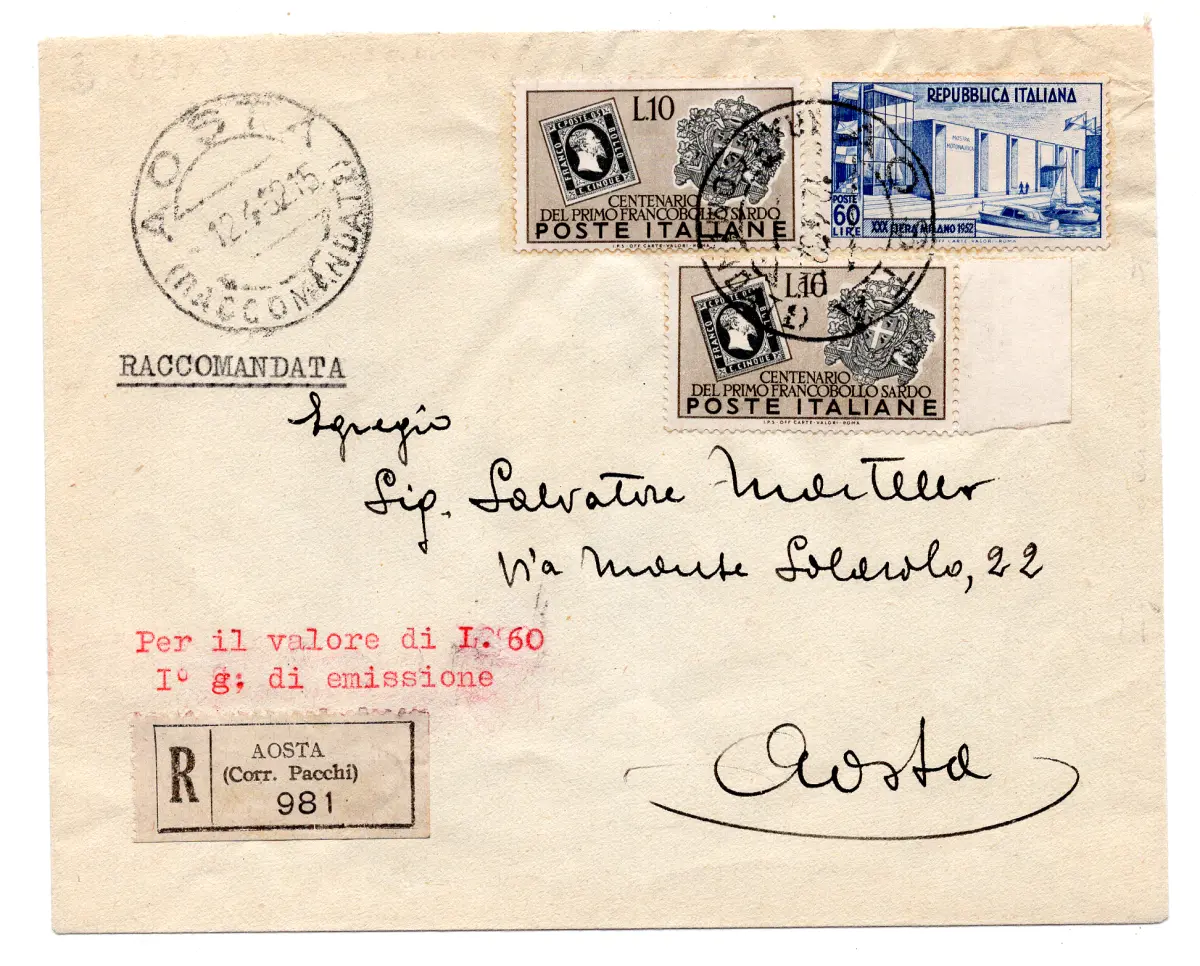 AOSTA
12.4.52.15
(RACCOMANDATE)
RACCOMANDATA
C. POSTE 05
BOLLO
FRANCO
C. CINQUE
L.10
CENTENARIO
DEL PRIMO FRANCOBOLLO SARDO
POSTE ITALIANE
I.P.S. OFF. CARTE-VALORI-ROMA
REPUBBLICA ITALIANA
MOSTRA
MOTONAUTICA
POSTE
60
LIRE
XXX FIERA MILANO 1952
OFF. CARTE-VALORI-ROMA
C. POSTE 05
BOLLO
FRANCO
C. CINQUE
L.10
CENTENARIO
DEL PRIMO FRANCOBOLLO SARDO
POSTE ITALIANE
I.P.S. OFF. CARTE-VALORI-ROMA
Egregio
Sig. Salvatore Martello
Via Monte Solarolo, 22
Aosta
Per il valore di L. 60
I° g; di emissione
R
AOSTA
(Corr. Pacchi)
981